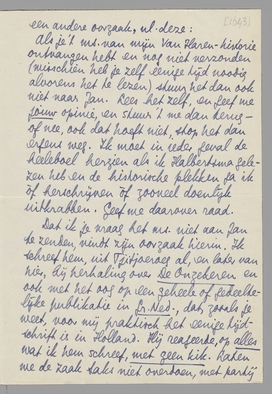 [1943]
een andere oorzaak, nl. deze:
Als je 't ms. van mijn Van Haren-historie
ontvangen hebt en nog niet verzonden
(misschien heb je zelf eenige tijd noodig
alvorens het te lezen) stuur het dan ook
niet naar Jan. Lees het zelf, en geef me
jouw opinie, en stuur 't me dan terug -
of nee, ook dat hoeft niet, stop het dan
ergens weg. Ik moet in ieder geval de
heeleboel herzien als ik Halbertsma gele-
zen heb en de historische plekken ga ik
òf herschrijven òf zooveel doenlijk
uitkrabben. Geef me daarover raad.
Dat ik je vraag het ms. niet aan Jan
te zenden, vindt zijn oorzaak hierin. Ik
schreef hem, uit Tjitjoeroeg al, en later van
hier, bij herhaling over De Onzekeren en
ook met het oog op een geheele of gedeelte-
lijke publikatie in Gr. Ned., dat, zooals je
weet, voor mij praktisch het eenige tijd-
schrift is in Holland. Hij reageerde, op alles
wat ik hem schreef, met geen kik. Laten
me de zaak niet overdoen, met partij